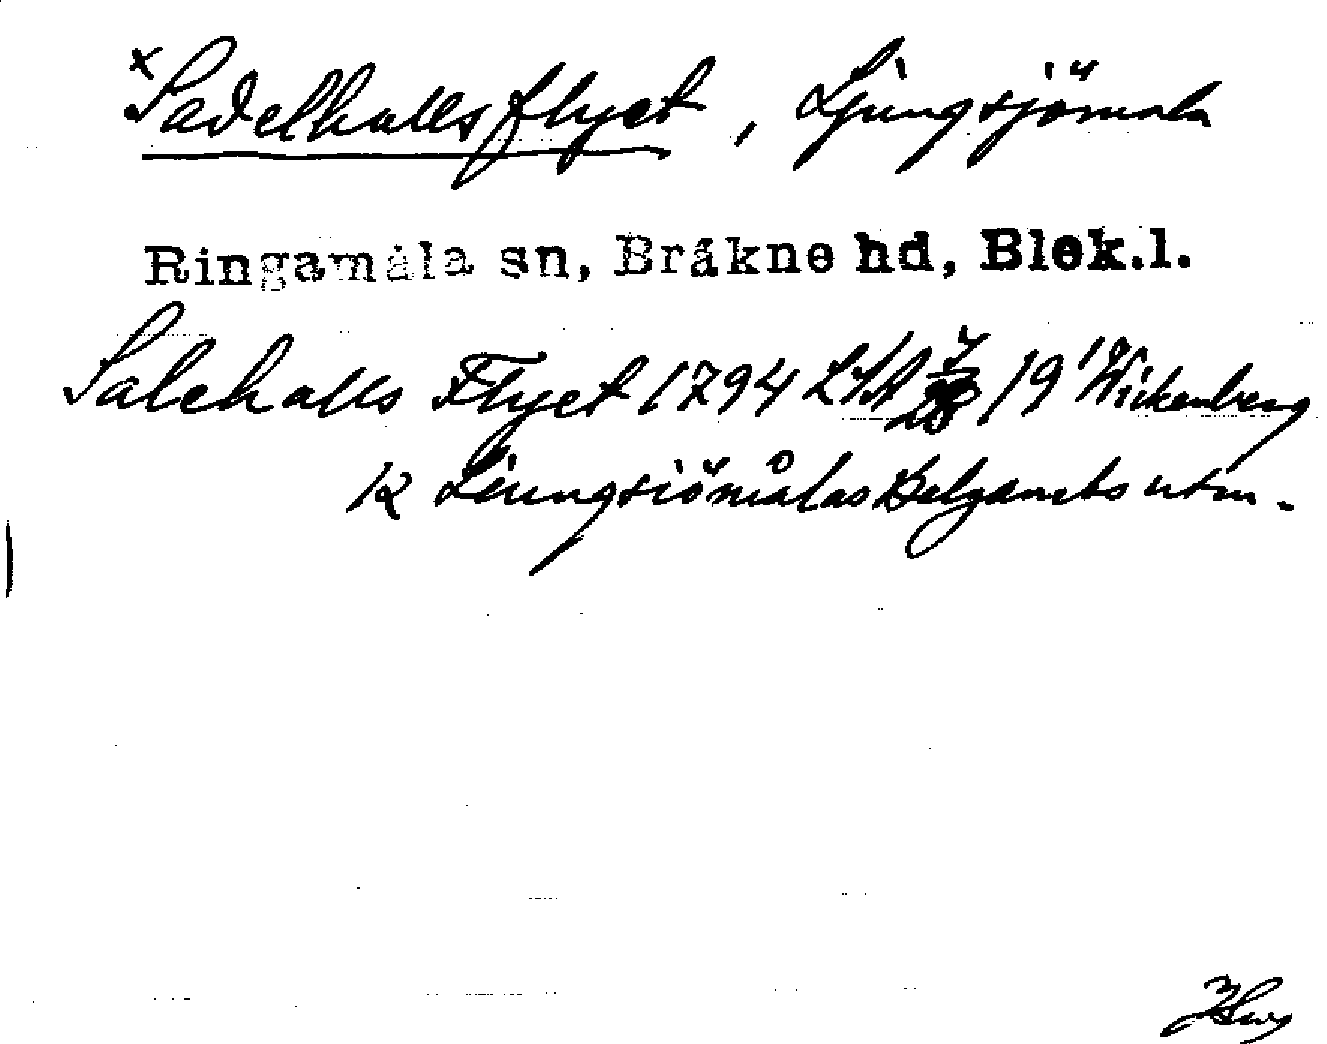 x Sadelhallsflyet, Ljungsjömåla
Ringamåla sn, Bräkne hd, Blek.l.
Salehalls Flyet 1794 LSA 19 Wickenberg
k Liungsiömålas Belgamots utm.